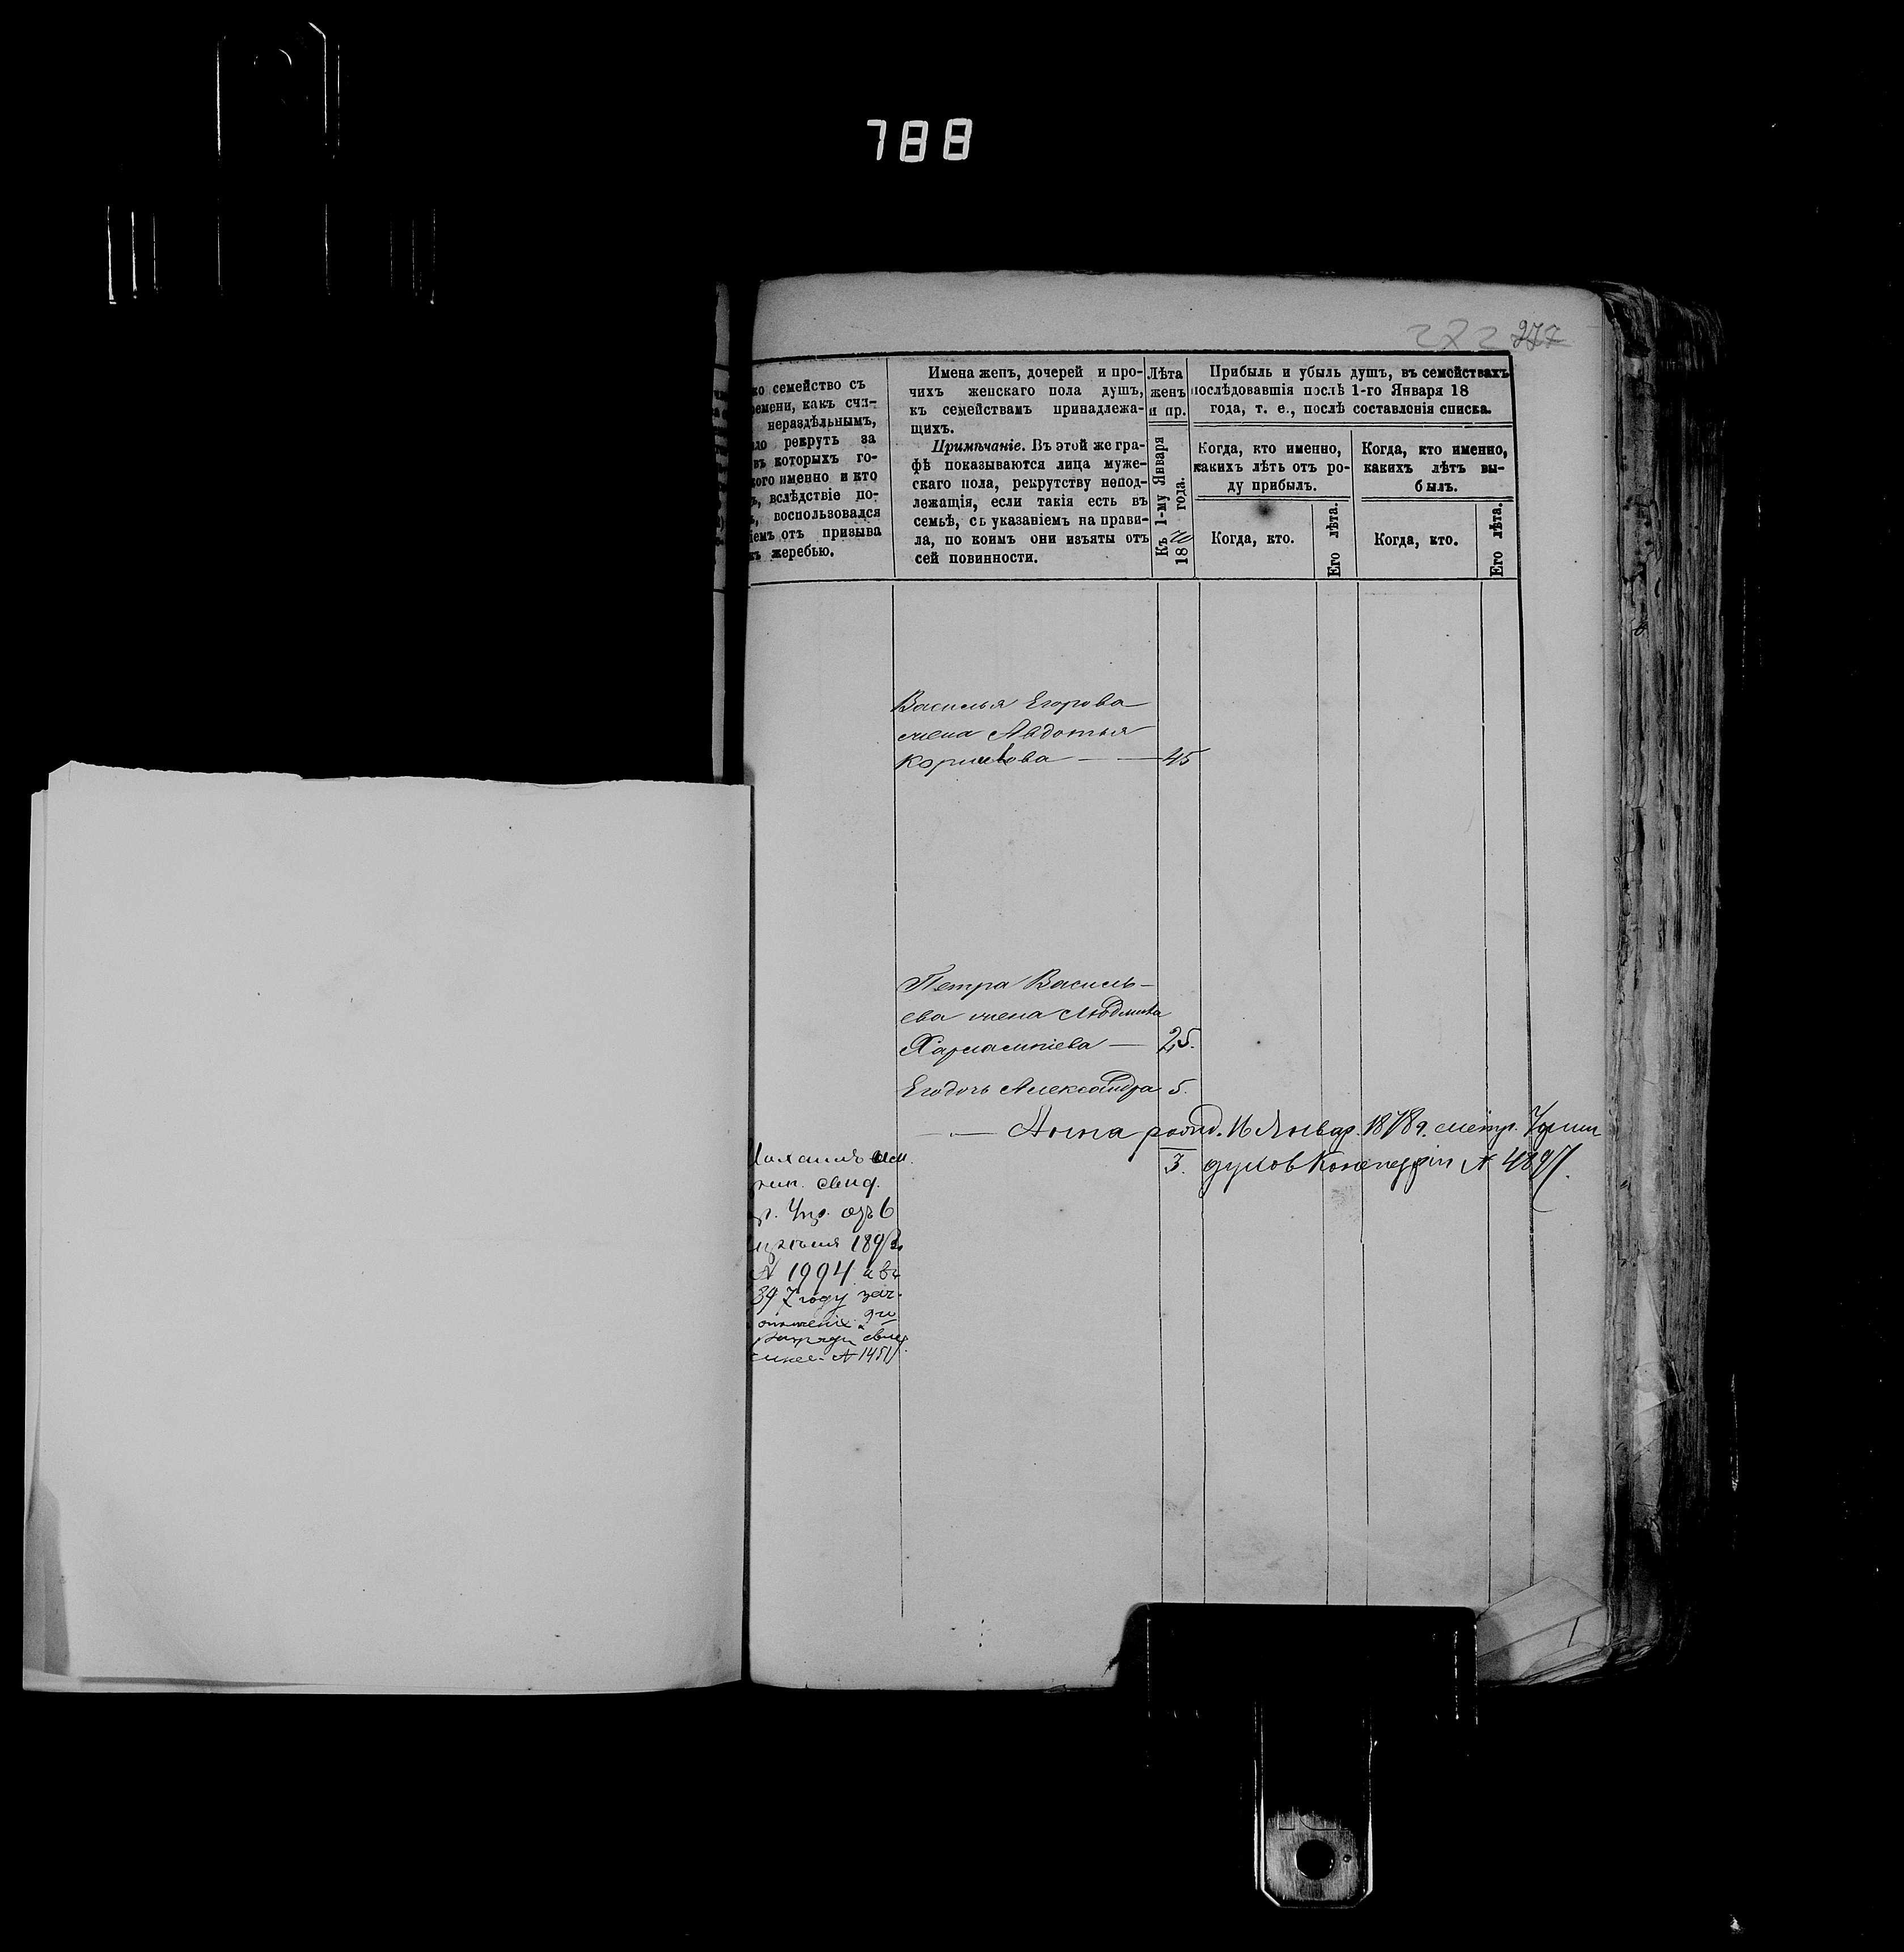 788
272 277
семейство съ
какъ счи-
нераздѣльнымъ,
рекрутъ за
въ которыхъ го-
именно и кто
вслѣдствіе по-
воспользовался
отъ призыва
жеребью.
Имена женъ, дочерей и про-
чихъ женскаго пола душъ,
къ семействамъ принадлежа-
щихъ.
Примѣчаніе. Въ этой же гра-
фѣ показываются лица муже-
скаго пола, рекрутству непод-
лежащія, если такія есть въ
семьѣ, съ указаніемъ на прави-
ла, по коимъ они изъяты отъ
сей повинности.
Лѣта
женъ
и пр.
Къ 1-му Января
18 года.
Прибыль и убыль душъ, въ семействахъ
послѣдовавшія послѣ 1-го Января 18
года, т. е., послѣ составленія списка.
Когда, кто именно,
какихъ лѣтъ отъ ро-
ду прибылъ.
Когда, кто.
Его лѣта.
Когда, кто именно,
какихъ лѣтъ вы-
былъ.
Когда, кто.
Его лѣта.
Василья Егорова
жена Авдотья
45
Петра Василь-
ева жена Людмила
Харлампіева — 25.
Его дочь Александра 5.
— Анна рожд. 16 Январ. 1878 г. метр.
3. духов № 4897.
свид.
№ 1994
году
№ 1451